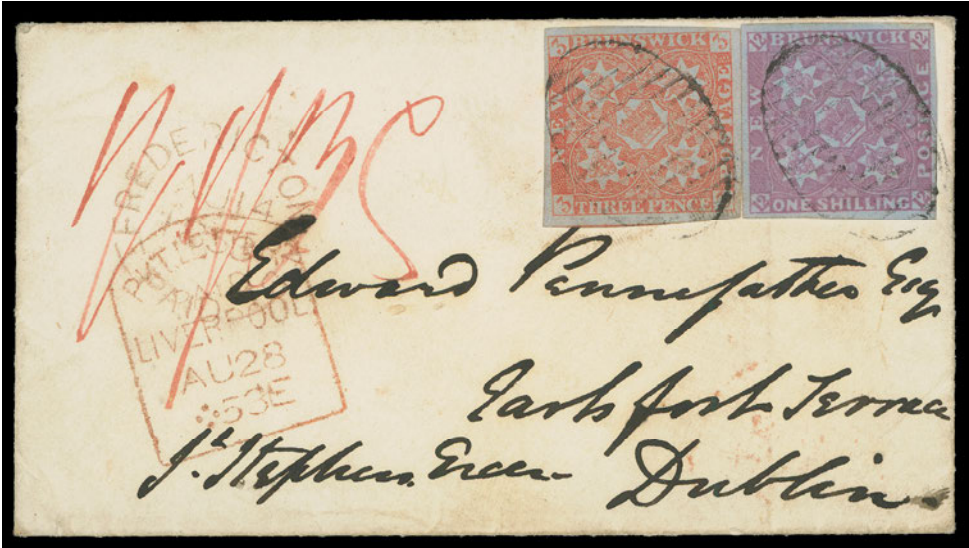 3 BRUNSWICK 3
NEW
POSTAGE
3 THREE PENCE 3
12 BRUNSWICK 12
NEW
POSTAGE
12 ONE SHILLING 12
FREDERICTON
PKT. LETTER
PAID
LIVERPOOL
AU 28
53 E
Edward Pennefather Esq
Earlsfort Terrace
St. Stephens Green
Dublin